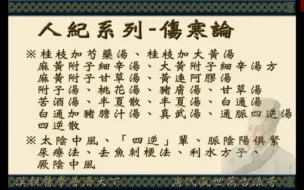 人紀系列-傷寒論
※桂枝加芍藥湯、桂枝加大黃湯
麻黃附子細辛湯、大黃附子細辛湯方
麻黃附子甘草湯、黃連阿膠湯
附子湯、桃花湯、豬膚湯、甘草湯
苦酒湯、半夏散、半夏湯、白通湯
白通加豬膽汁湯、真武湯、通脈四逆湯
四逆散
※太陰中風、「四逆」輩、脈陰陽俱緊
尿療法、去魚刺梗法、利水方子、
厥陰中風